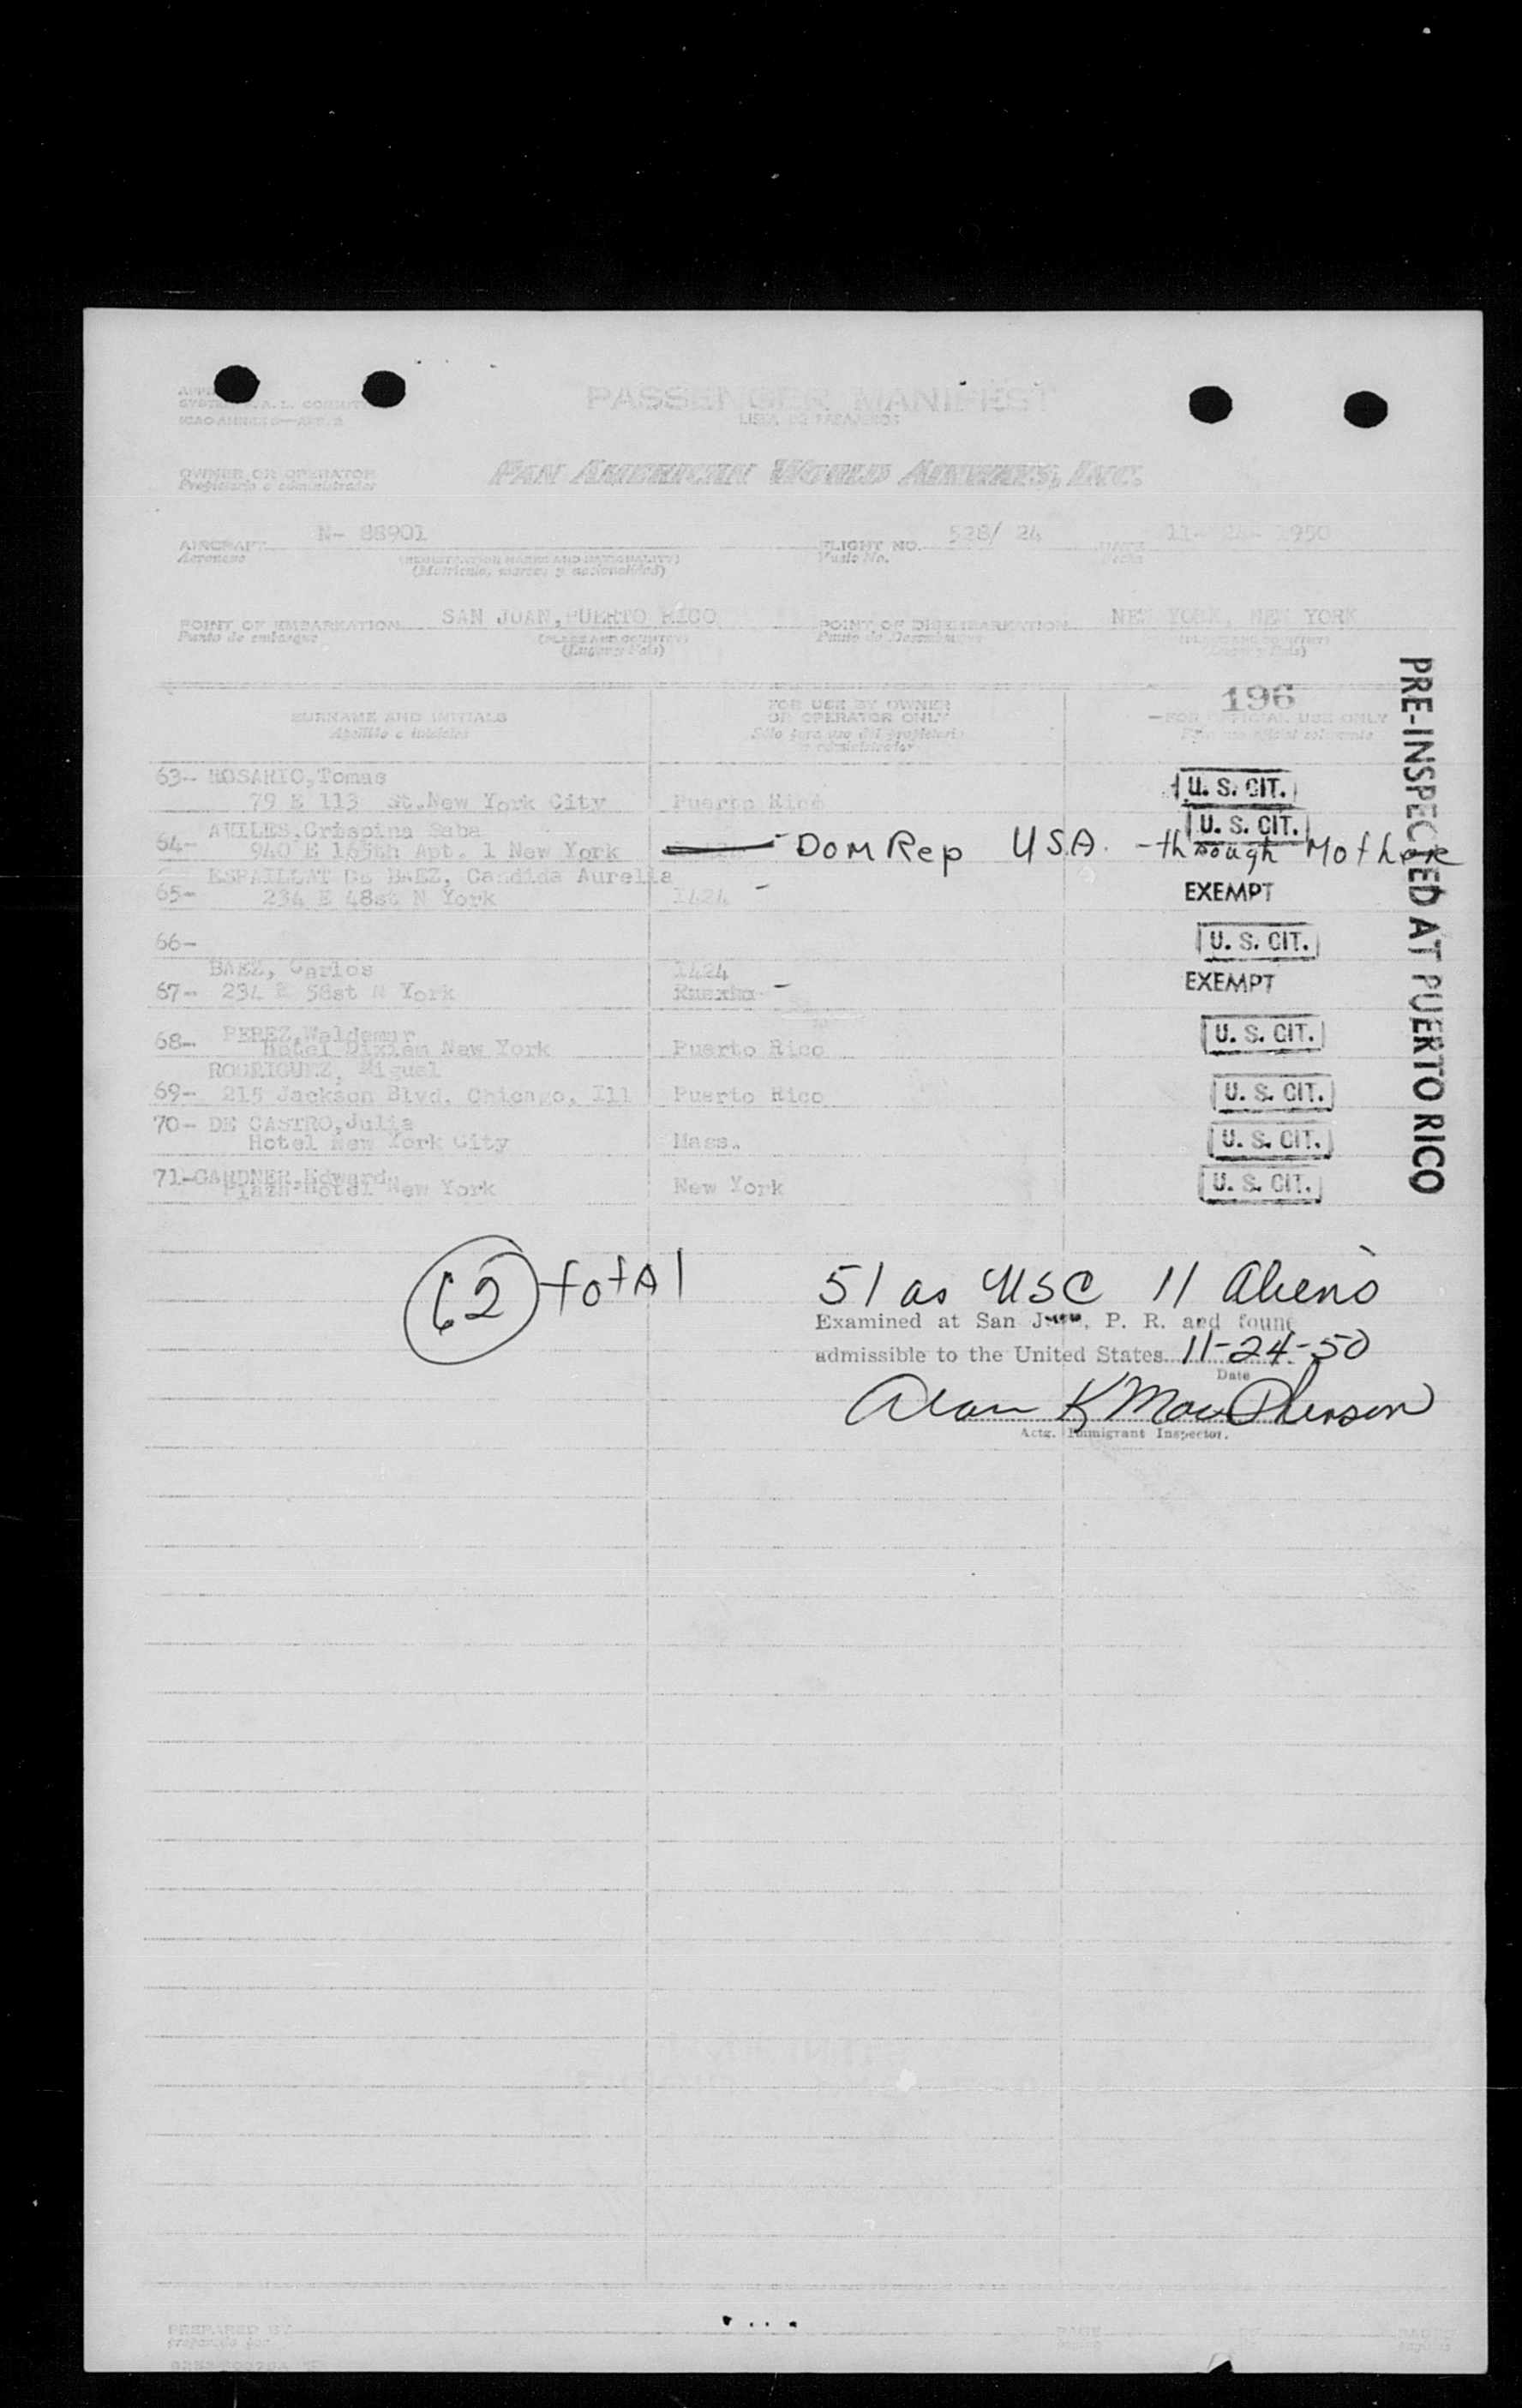 PASSENGER MANIFEST
LISTA DE PASAJEROS
OWNER OR OPERATOR
Propietario o administrador
PAN AMERICAN WORLD AIRWAYS, INC.
AIRCRAFT N- 88901 FLIGHT NO. 528/ 24 DATE 11- 24- 1950
Aeronave (REGISTRATION MARKS AND NATIONALITY) Vuelo No. Fecha
(Matricula, marcas y nacionalidad)
POINT OF EMBARKATION SAN JUAN, PUERTO RICO POINT OF DISEMBARKATION NEW YORK, NEW YORK
Punto de embarque (PLACE AND COUNTRY) Punto de Desembarque (PLACE AND COUNTRY)
(Lugar y Pais) (Lugar y Pais)
196
SURNAME AND INITIALS FOR USE BY OWNER OR OPERATOR ONLY —FOR OFFICIAL USE ONLY
Apellido e iniciales Sólo para uso del propietario o administrador Para uso oficial solamente
PRE-INSPECTED AT PUERTO RICO
63-- ROSARIO, Tomas U. S. CIT.
79 E 113 St. New York City Puerto Rico
64- AVILES, Crispina Saba U. S. CIT.
940 E 165th Apt. 1 New York - Dom Rep USA. - through Mother
65- ESPAILLAT De BAEZ, Candida Aurelia EXEMPT
234 E 48st N York I424 -
66- U. S. CIT.
BAEZ, Carlos I424
67- 234 E 58st N York - EXEMPT
68- PEREZ, Waldemar U. S. CIT.
Hotel New York Puerto Rico
RODRIGUEZ, Miguel
69- 215 Jackson Blvd. Chicago, Ill Puerto Rico U. S. CIT.
70- DE CASTRO, Julia U. S. CIT.
Hotel New York City Mass.
71-GARDNER, Edward U. S. CIT.
Plaza Hotel New York New York
62 total 51 as USC 11 Aliens
Examined at San Juan, P. R. and found
admissible to the United States 11-24-50
Date
Alan K MacPherson
Actg. Immigrant Inspector.
PREPARED BY PAGE OF PAGES
preparado por